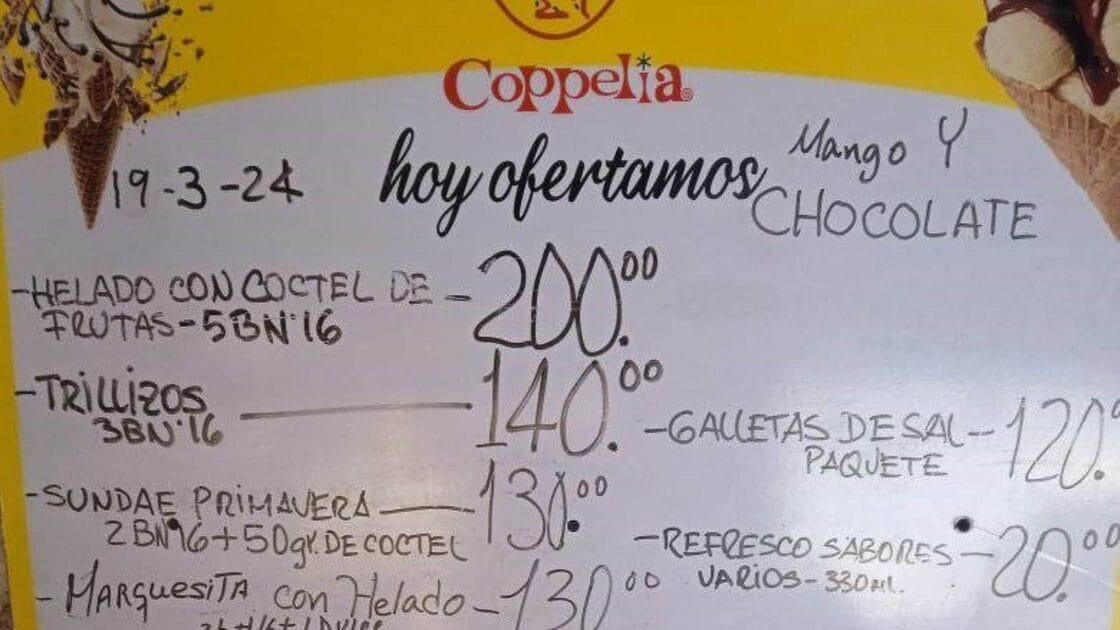 Coppelia
19-3-24 hoy ofertamos Mango Y
CHOCOLATE
-HELADO CON COCTEL DE - 200.00
FRUTAS-5BN'16
-TRILLIZOS — 140.00
3BN'16
-GALLETAS DE SAL-- 120.
PAQUETE
-SUNDAE PRIMAVERA — 130.00
2BN'16+50gr. DE COCTEL
-REFRESCO SABORES - 20.00
VARIOS-330ml.
- MARquesitA con Helado - 130 00